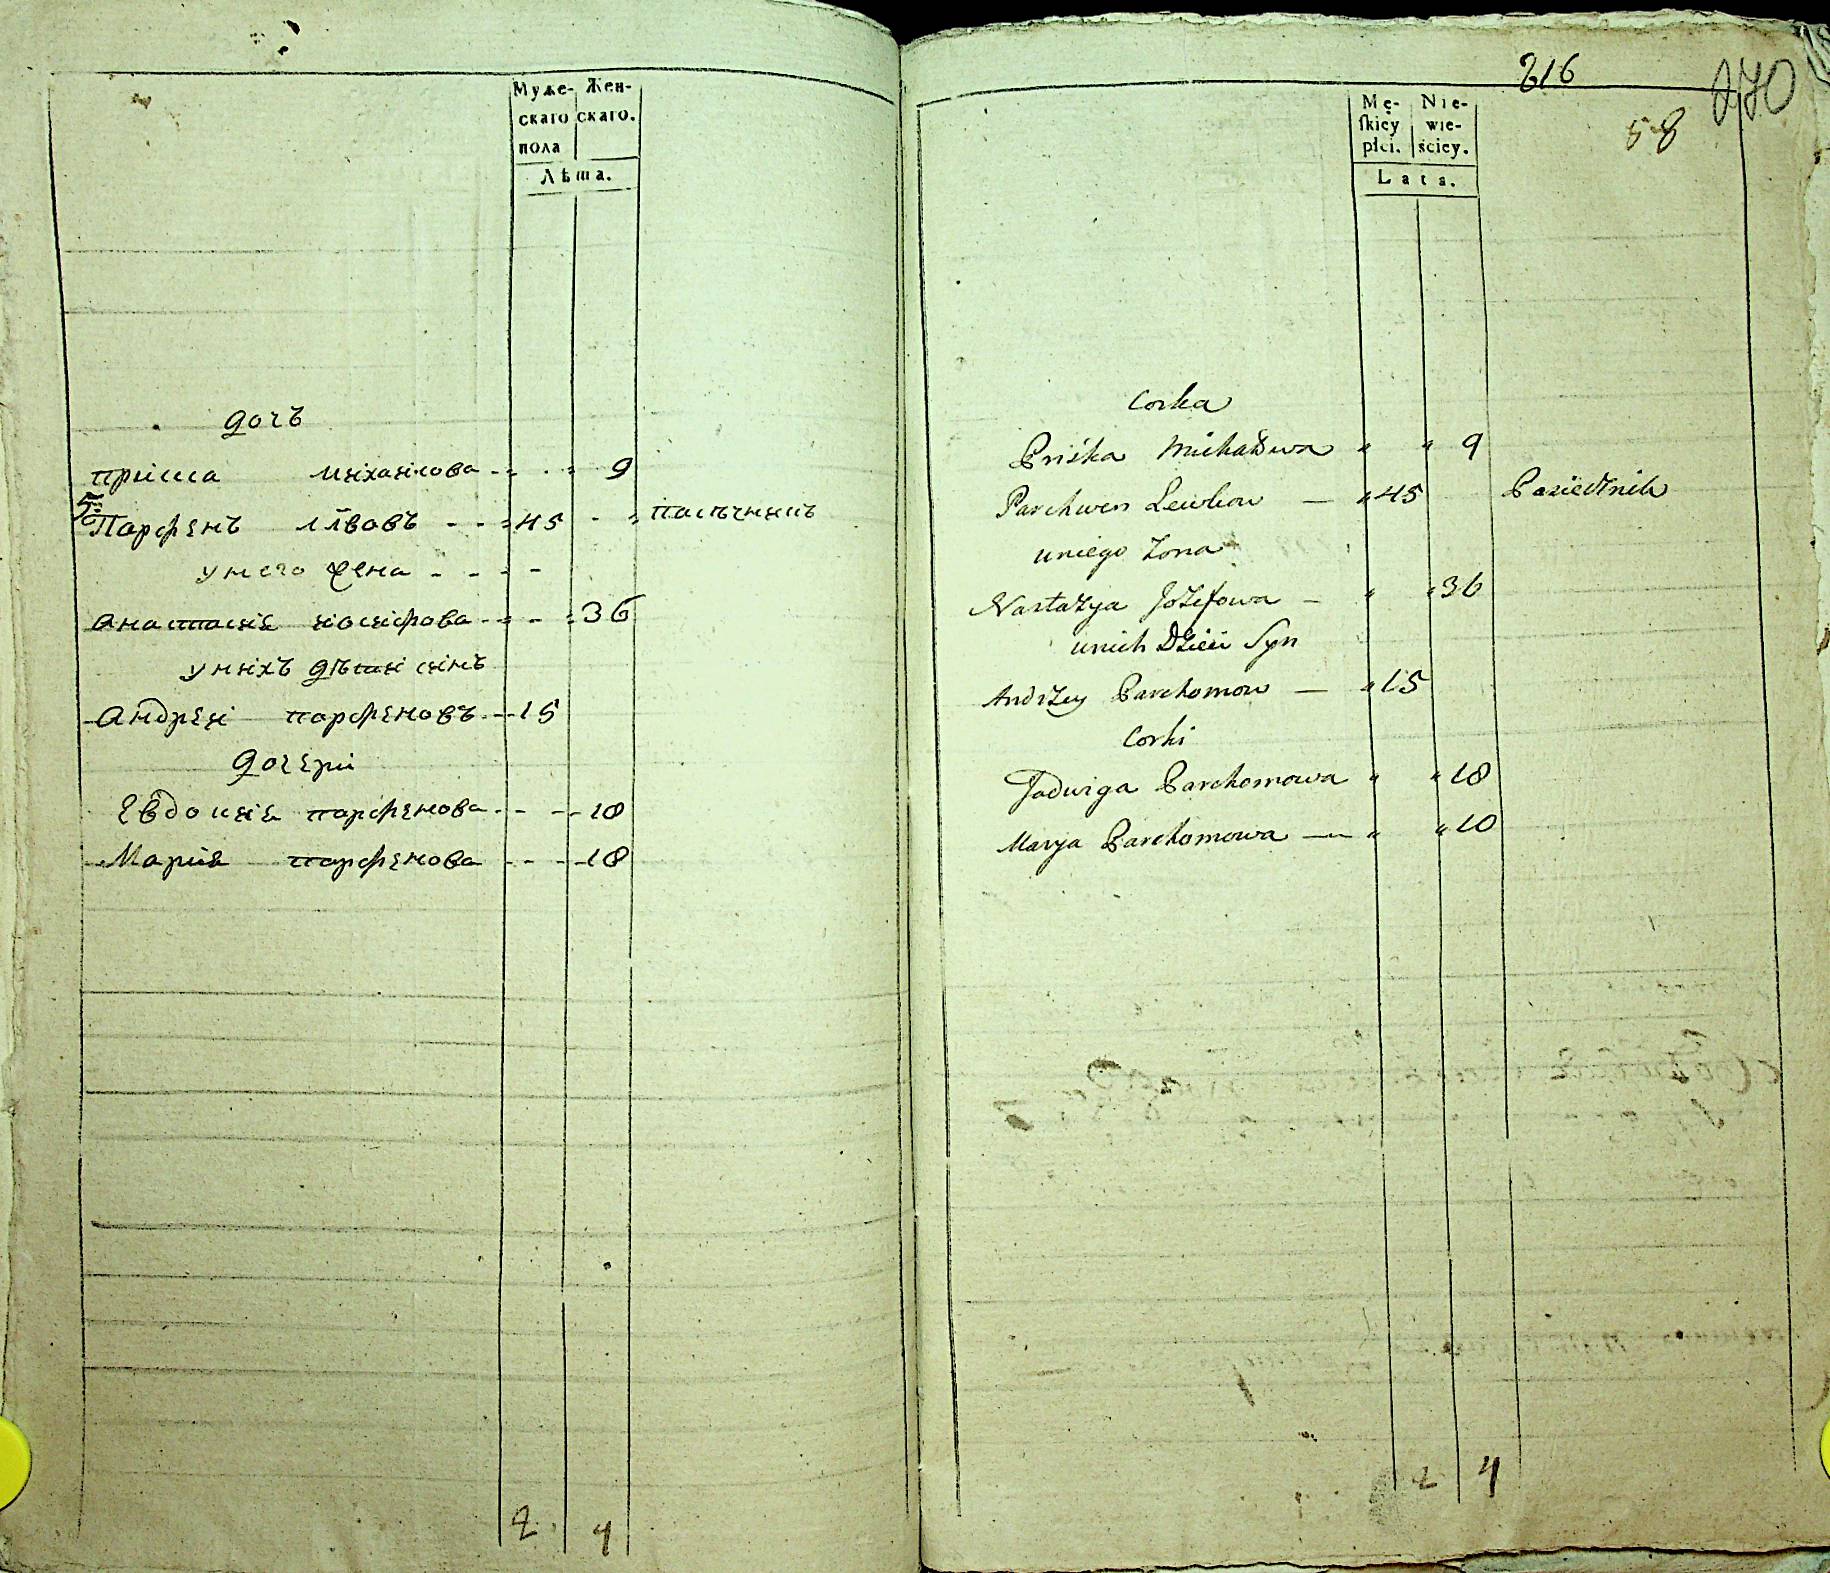 Муже- Жен-
скаго скаго.
пола
Лѣта.
дочъ
приска михаилова 9
5. Парфенъ Львовъ 45 пасѣчникъ
у него жена
анастасия иосифова 36
у нихъ дѣти синъ
Андреи парфеновъ 15
дочери
Евдокия парфенова 18
Мария парфенова 10
2 4
216 270
58
Mę- Nie-
skiey wie-
płci. ściey.
Lata.
Corka
Priśka Michałowa " " 9
Parchwen Lewkow — " 45 Pasiecznik
uniego Zona
Nastazya Jozefowa — " " 36
unich Dzieci Syn
Andrzey Parchomow — " 15
Corki
Jadwiga Parchomowa " " 18
Marya Parchomowa — " " 10
2 4